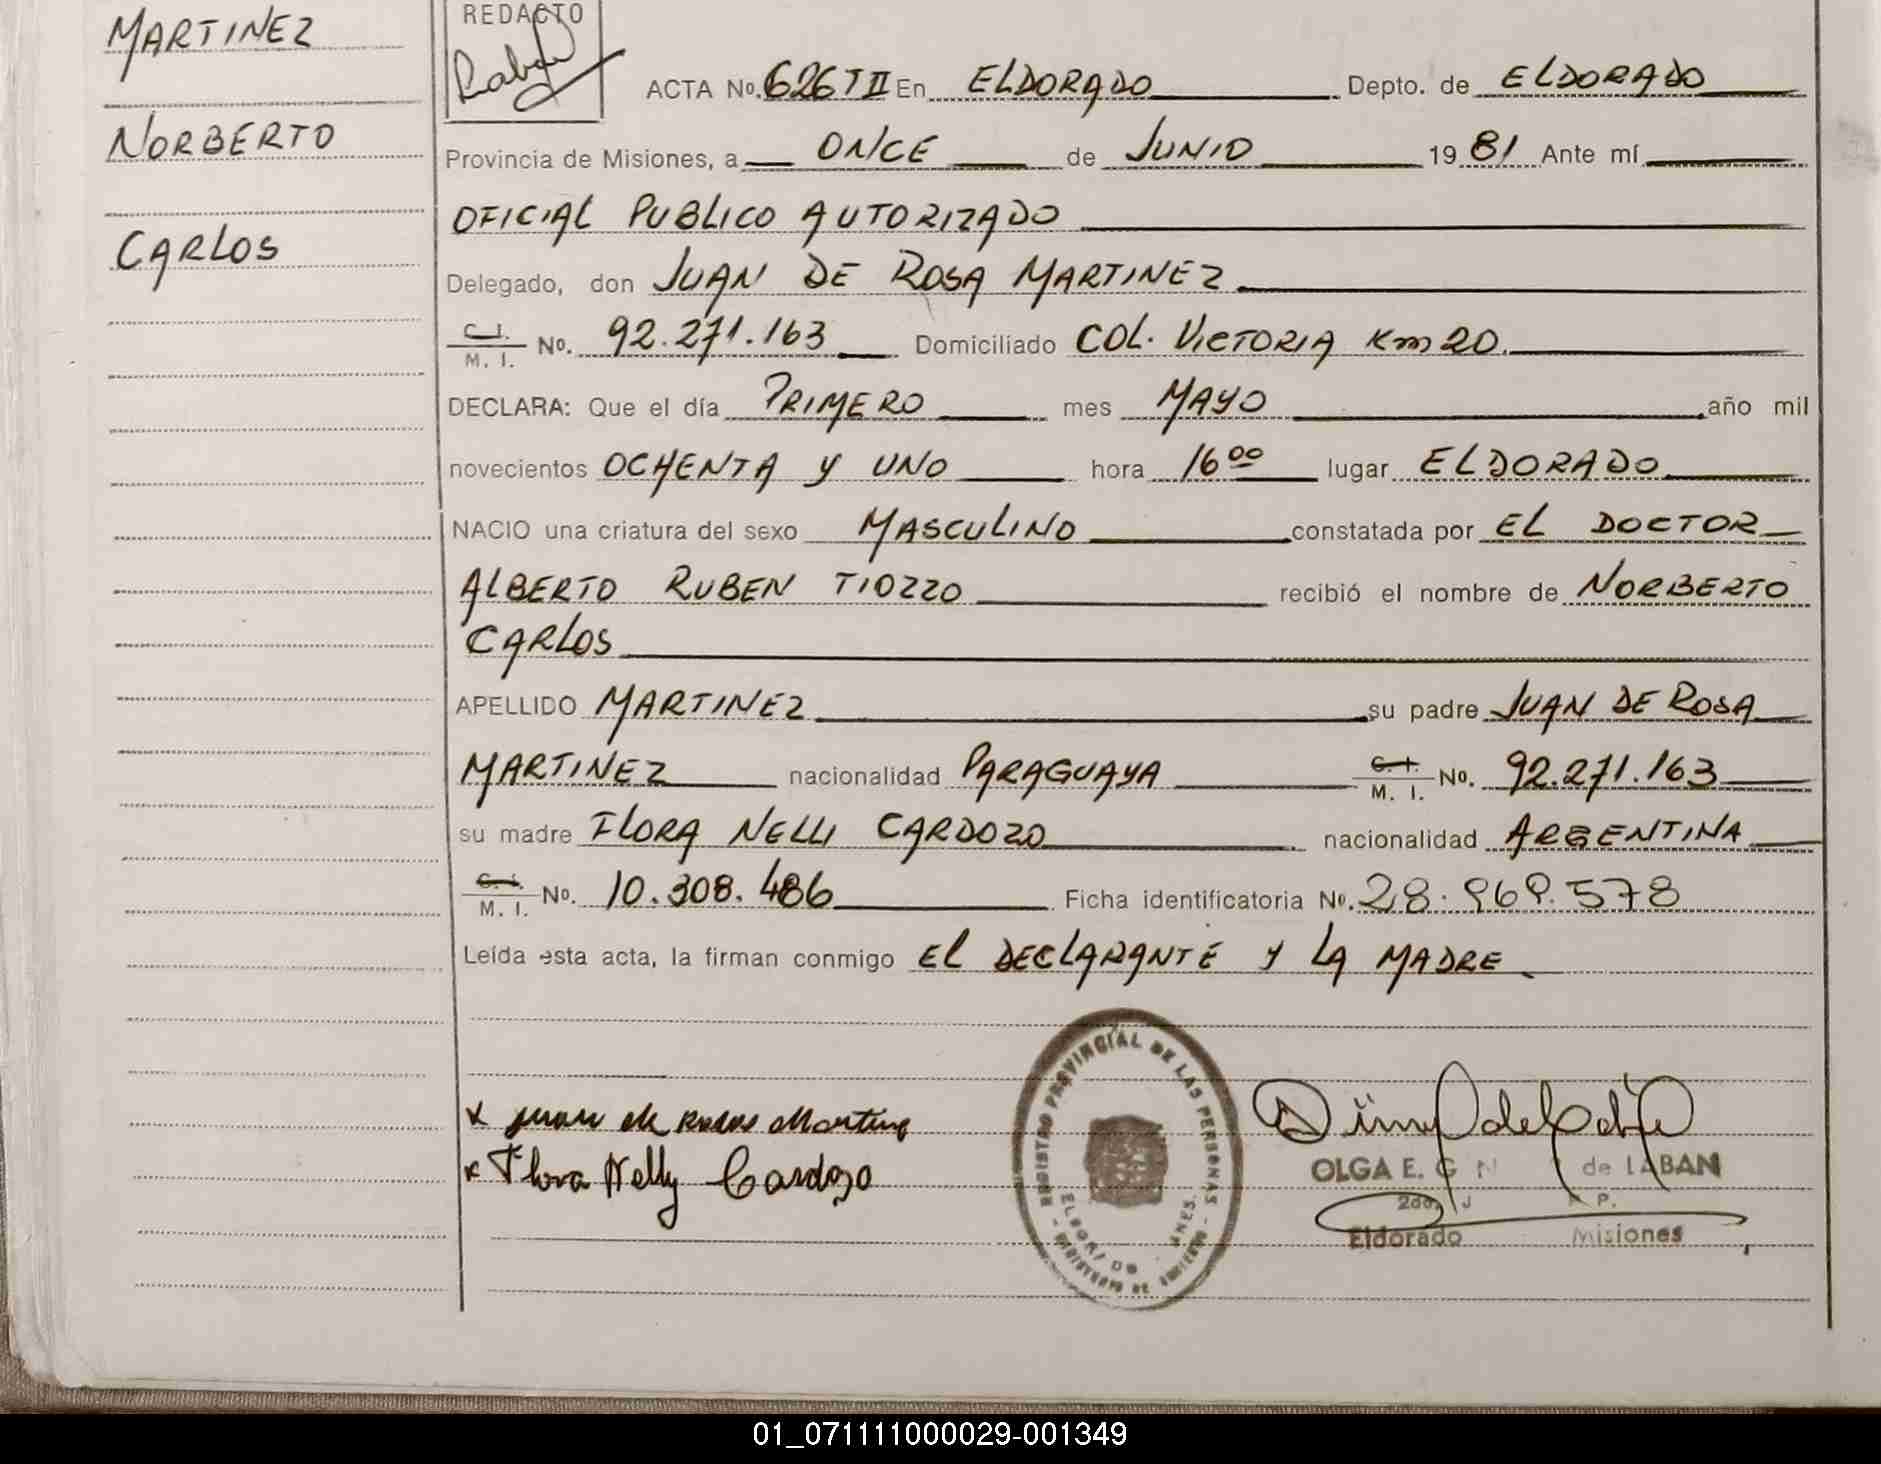 MARTINEZ
NORBERTO
CARLOS
REDACTO
ACTA No. 626 T II En ELDORADO Depto. de ELDORADO
Provincia de Misiones, a ONCE de JUNIO 19 81 Ante mí
OFICIAL PUBLICO AUTORIZADO
Delegado, don JUAN DE ROSA MARTINEZ
C. I.
M. I. No. 92.271.163 Domiciliado COL. VICTORIA Km 20.
DECLARA: Que el día PRIMERO mes MAYO año mil
novecientos OCHENTA y UNO hora 16 00 lugar ELDORADO
NACIO una criatura del sexo MASCULINO constatada por EL DOCTOR
ALBERTO RUBEN TIOZZO recibió el nombre de NORBERTO
CARLOS
APELLIDO MARTINEZ su padre JUAN DE ROSA
MARTINEZ nacionalidad PARAGUAYA C. I. M. I. No. 92.271.163
su madre FLORA NELLI CARDOZO nacionalidad ARGENTINA
C. I.
M. I. No. 10.308.486 Ficha identificatoria No. 28.969.578
Leída esta acta, la firman conmigo EL DECLARANTE Y LA MADRE
x Juan de Martinez
x Flora Nelly Cardozo
REGISTRO PROVINCIAL DE LAS PERSONAS
OLGA E. G de LABAN
Eldorado Misiones
01_071111000029-001349